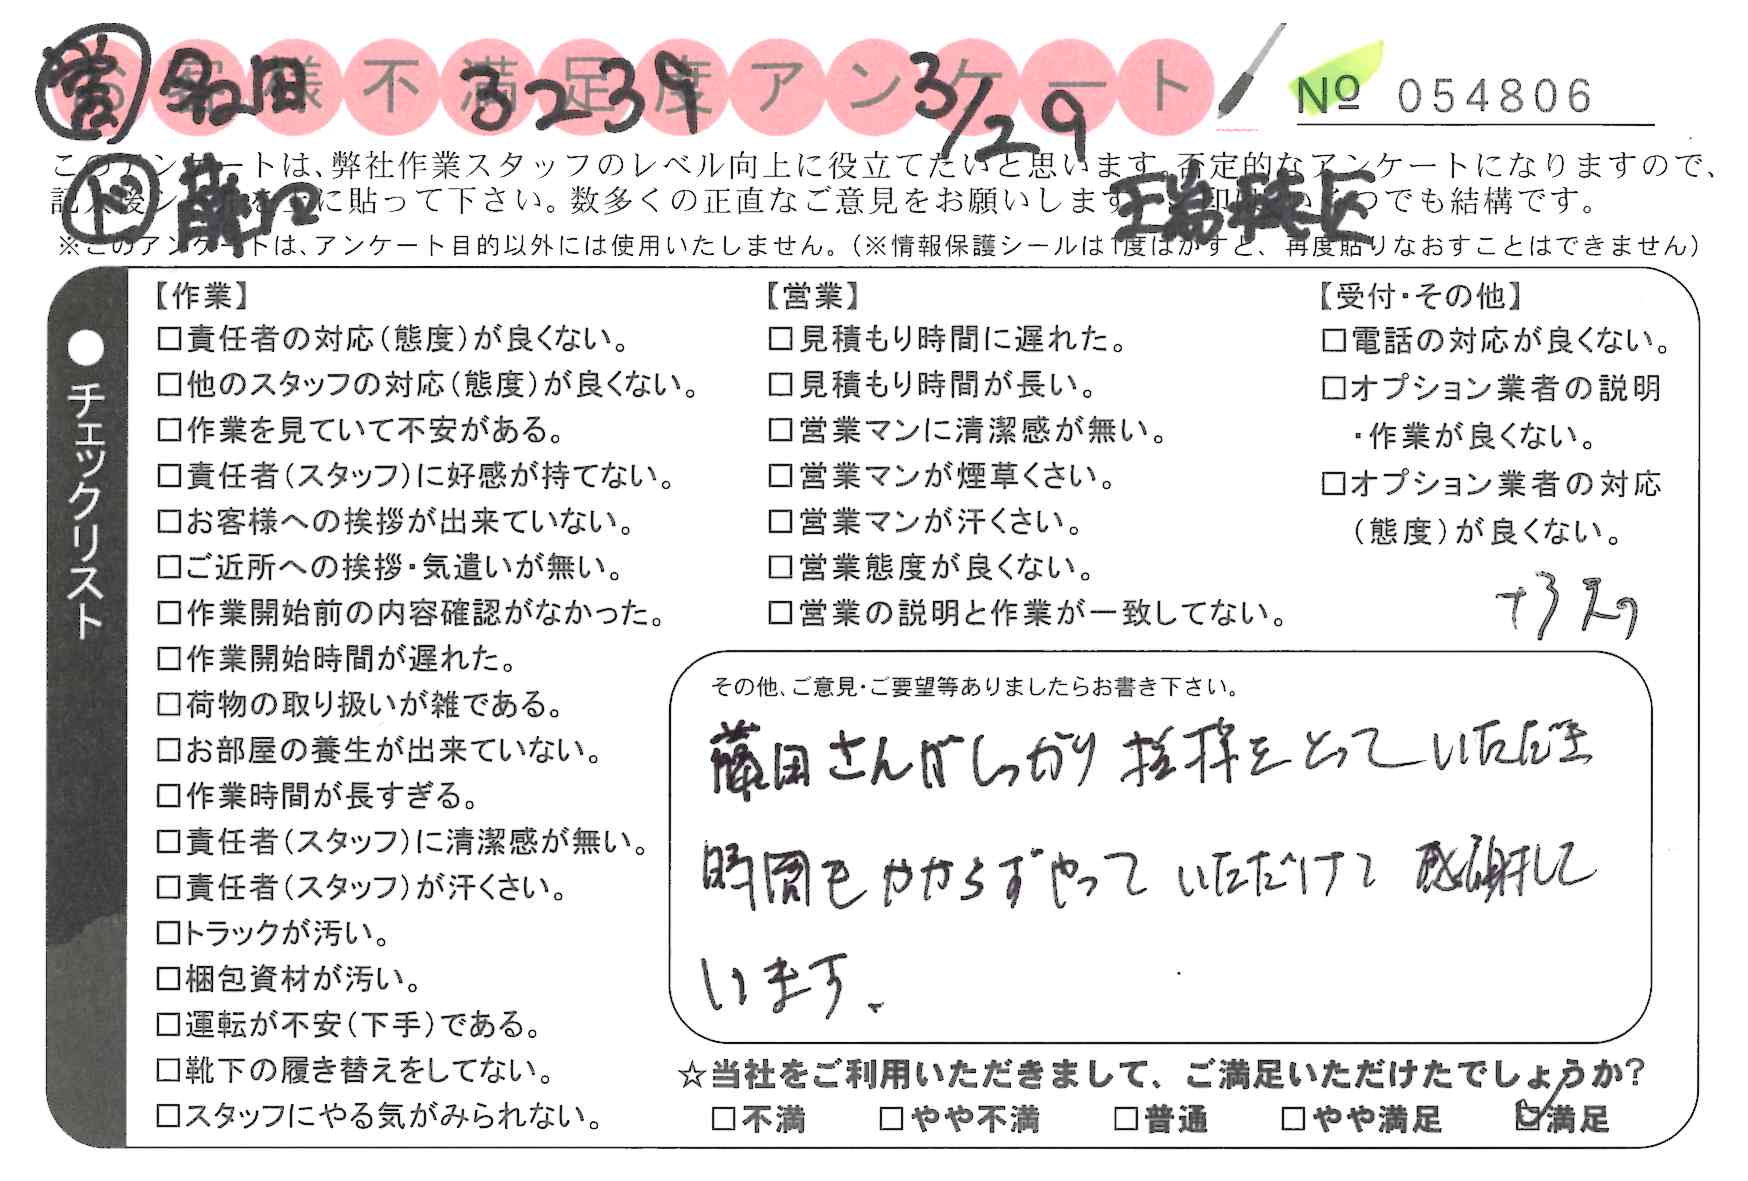 お客様不満足度アンケート
営 多田 3239 3/29
№ 054806
このアンケートは、弊社作業スタッフのレベル向上に役立てたいと思います。否定的なアンケートになりますので、
記入後シールを上に貼って下さい。数多くの正直なご意見をお願いします。 いくつでも結構です。
ド 藤 瑞穂区
※このアンケートは、アンケート目的以外には使用いたしません。(※情報保護シールは1度はがすと、再度貼りなおすことはできません)
●チェックリスト
【作業】
□責任者の対応(態度)が良くない。
□他のスタッフの対応(態度)が良くない。
□作業を見ていて不安がある。
□責任者(スタッフ)に好感が持てない。
□お客様への挨拶が出来ていない。
□ご近所への挨拶・気遣いが無い。
□作業開始前の内容確認がなかった。
□作業開始時間が遅れた。
□荷物の取り扱いが雑である。
□お部屋の養生が出来ていない。
□作業時間が長すぎる。
□責任者(スタッフ)に清潔感が無い。
□責任者(スタッフ)が汗くさい。
□トラックが汚い。
□梱包資材が汚い。
□運転が不安(下手)である。
□靴下の履き替えをしてない。
□スタッフにやる気がみられない。
【営業】
□見積もり時間に遅れた。
□見積もり時間が長い。
□営業マンに清潔感が無い。
□営業マンが煙草くさい。
□営業マンが汗くさい。
□営業態度が良くない。
□営業の説明と作業が一致してない。
【受付・その他】
□電話の対応が良くない。
□オプション業者の説明
・作業が良くない。
□オプション業者の対応
(態度)が良くない。
その他、ご意見・ご要望等ありましたらお書き下さい。
藤田さんがしっかり指揮をとっていただき
時間もかからずやっていただけて感謝して
います。
☆当社をご利用いただきまして、ご満足いただけたでしょうか?
□不満 □やや不満 □普通 □やや満足 ☑満足